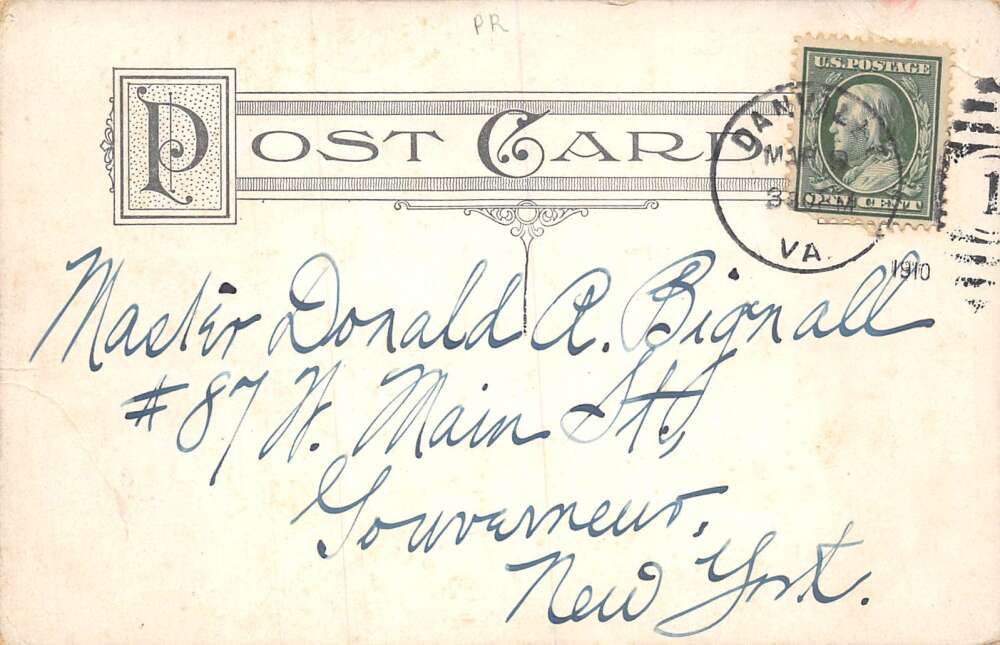 PR
POST CARD
U.S. POSTAGE
DANVILLE
MAR
VA
1910
1
Master Donald A. Bignall
#87 W. Main St.,
Gouverneur,
New York.